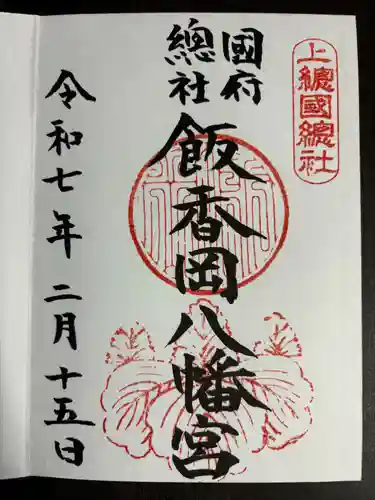 上總國總社
國府
總社
飯香岡八幡宮
令和七年二月十五日